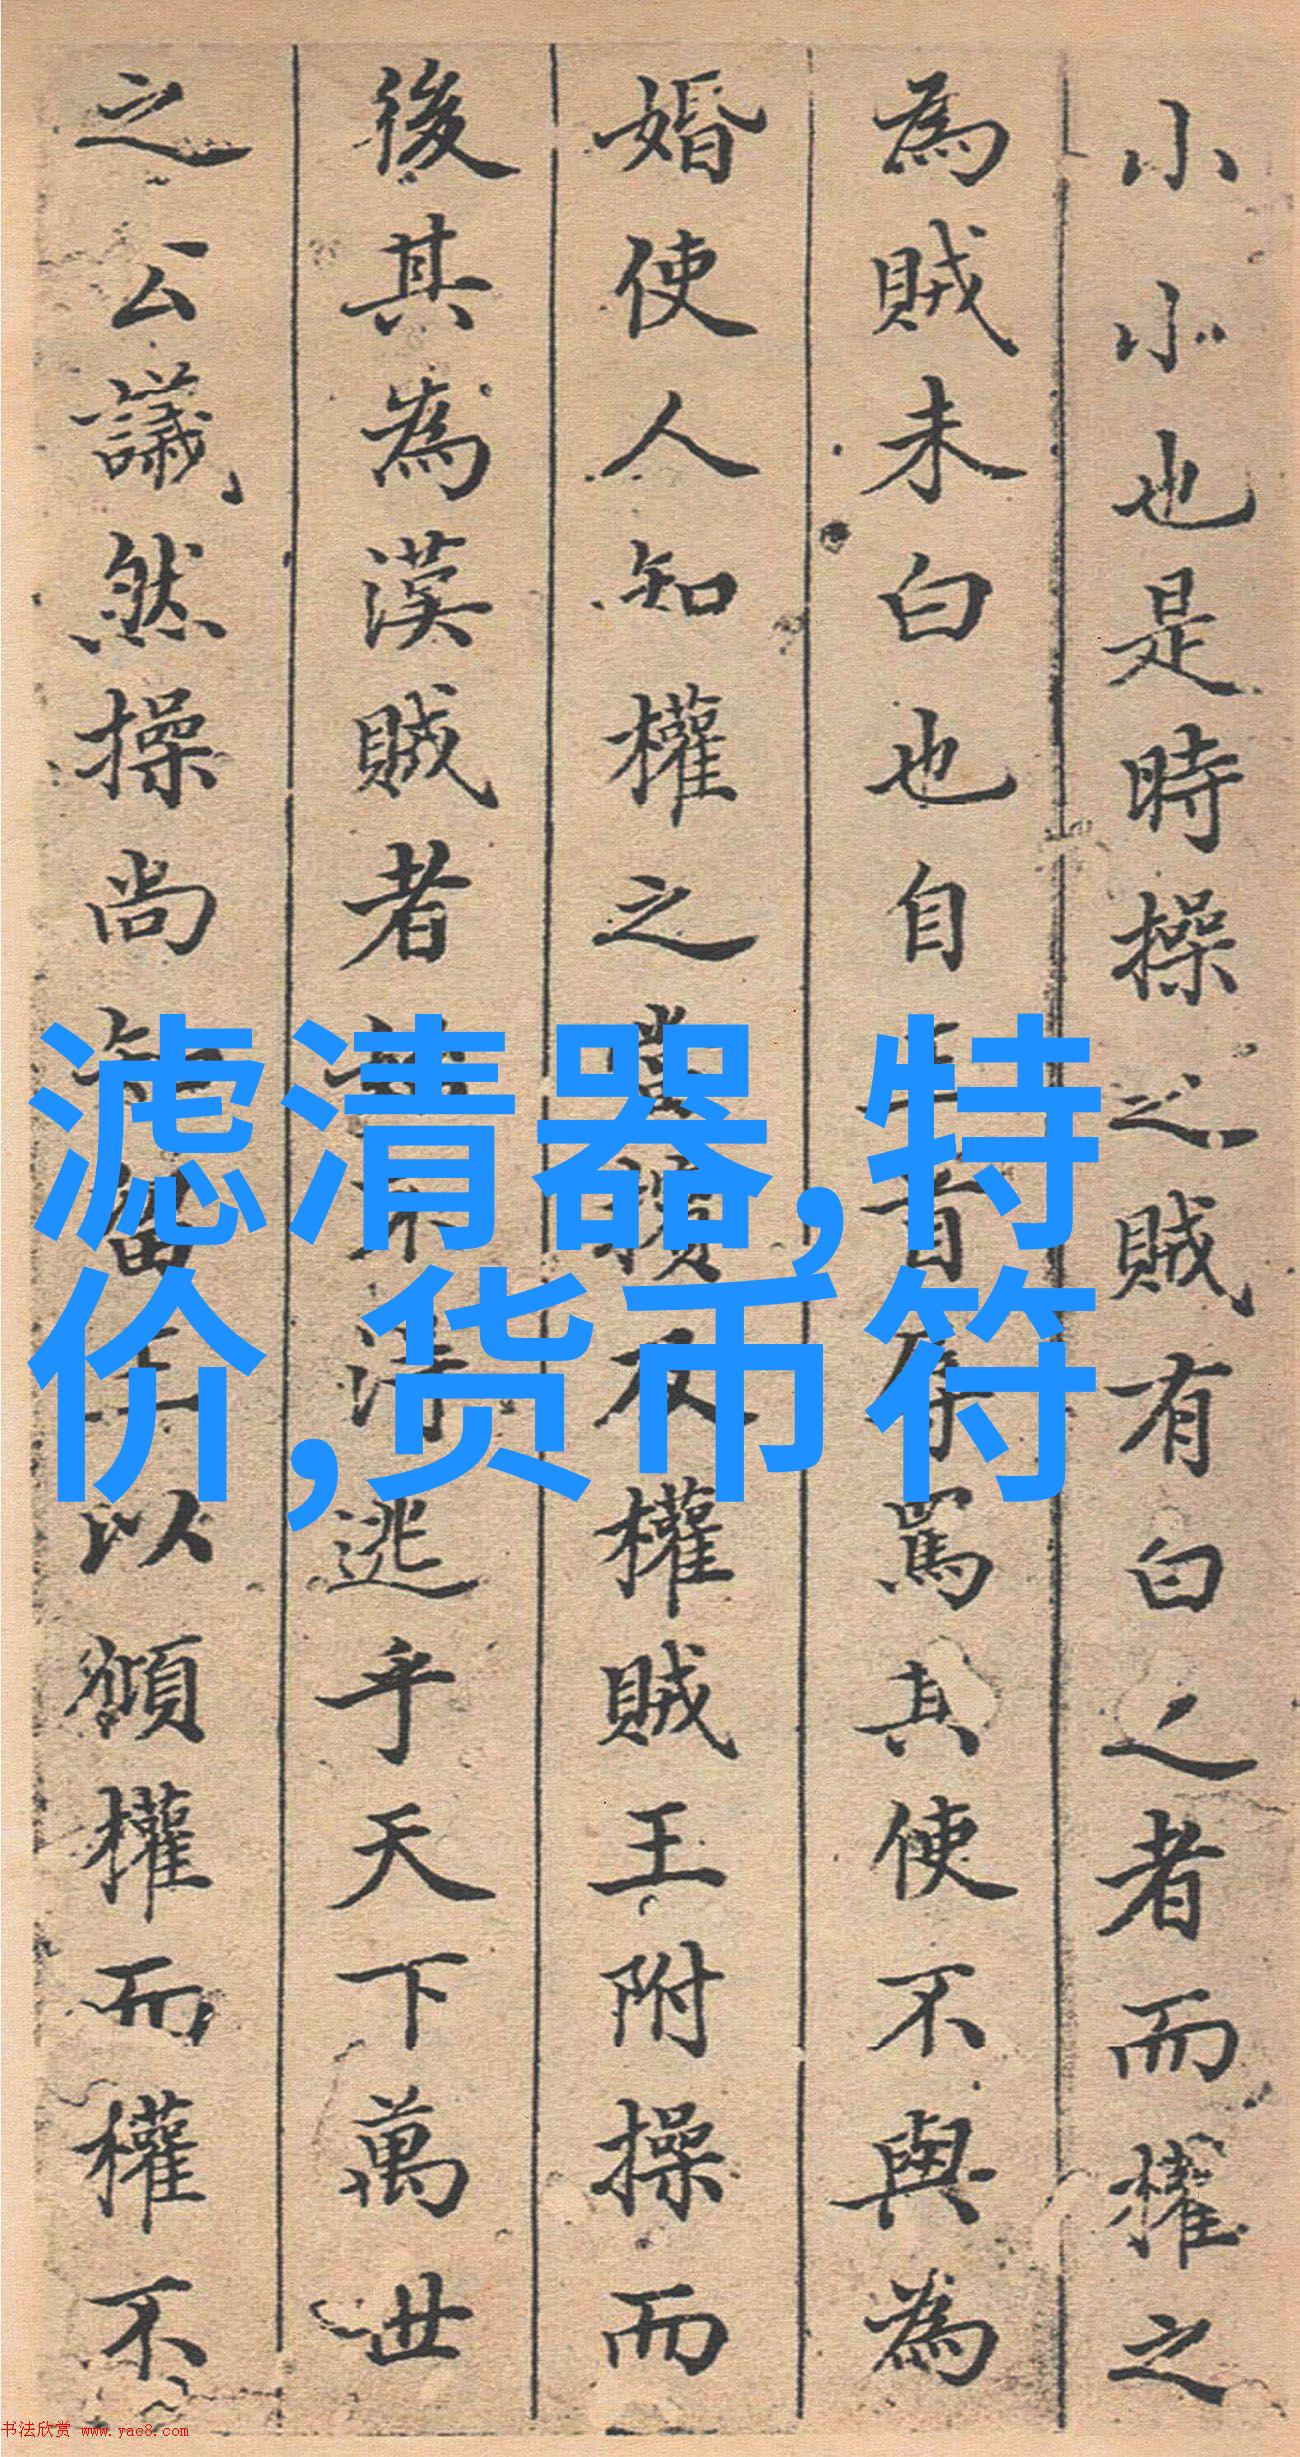 小小也是時操之賊有白之者而權之
為賊未白也自王者辱罵其使不與為
婚使人知權之當損反權賊王附操而
後其為漢賊者不淂逃乎天下萬世
之公議然操尚知畄王以頟權而權不
滤清器,特
价,货币符
书法欣赏 www.yac8.com